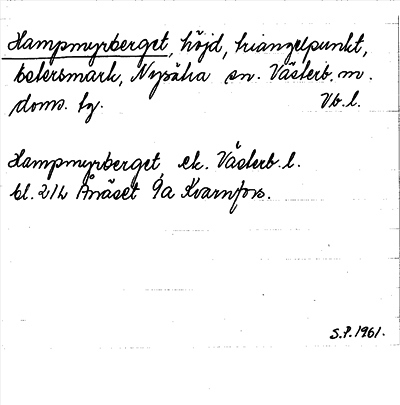 Hampmyrberget, höjd, triangelpunkt,
Estersmark, Nysätra sn. Västerb. m.
doms. hg. Vb.l.
Hampmyrberget, ek. Västerb.l.
bl. 21L Ånäset 9a Kvarnfors.
S.P. 1961.